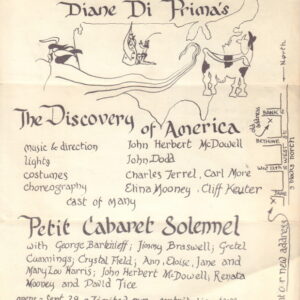 Diane Di Prima's
The Discovery of America
music & direction John Herbert McDowell
lights John Dodd
costumes Charles Terrel, Carl More
choreography Elina Mooney, Cliff Keuter
cast of many
Petit Cabaret Solennel
with George Bartenieff; Jimmy Braswell; Gretel
Cummings; Crystal Field; Ann, Eloise, Jane and
Mary Lou Harris; John Herbert McDowell; Renata
Mooney; and David Tice
opens Sept 29
North
old address
BANK
BETHUNE
WEST
3 blocks north
our new address